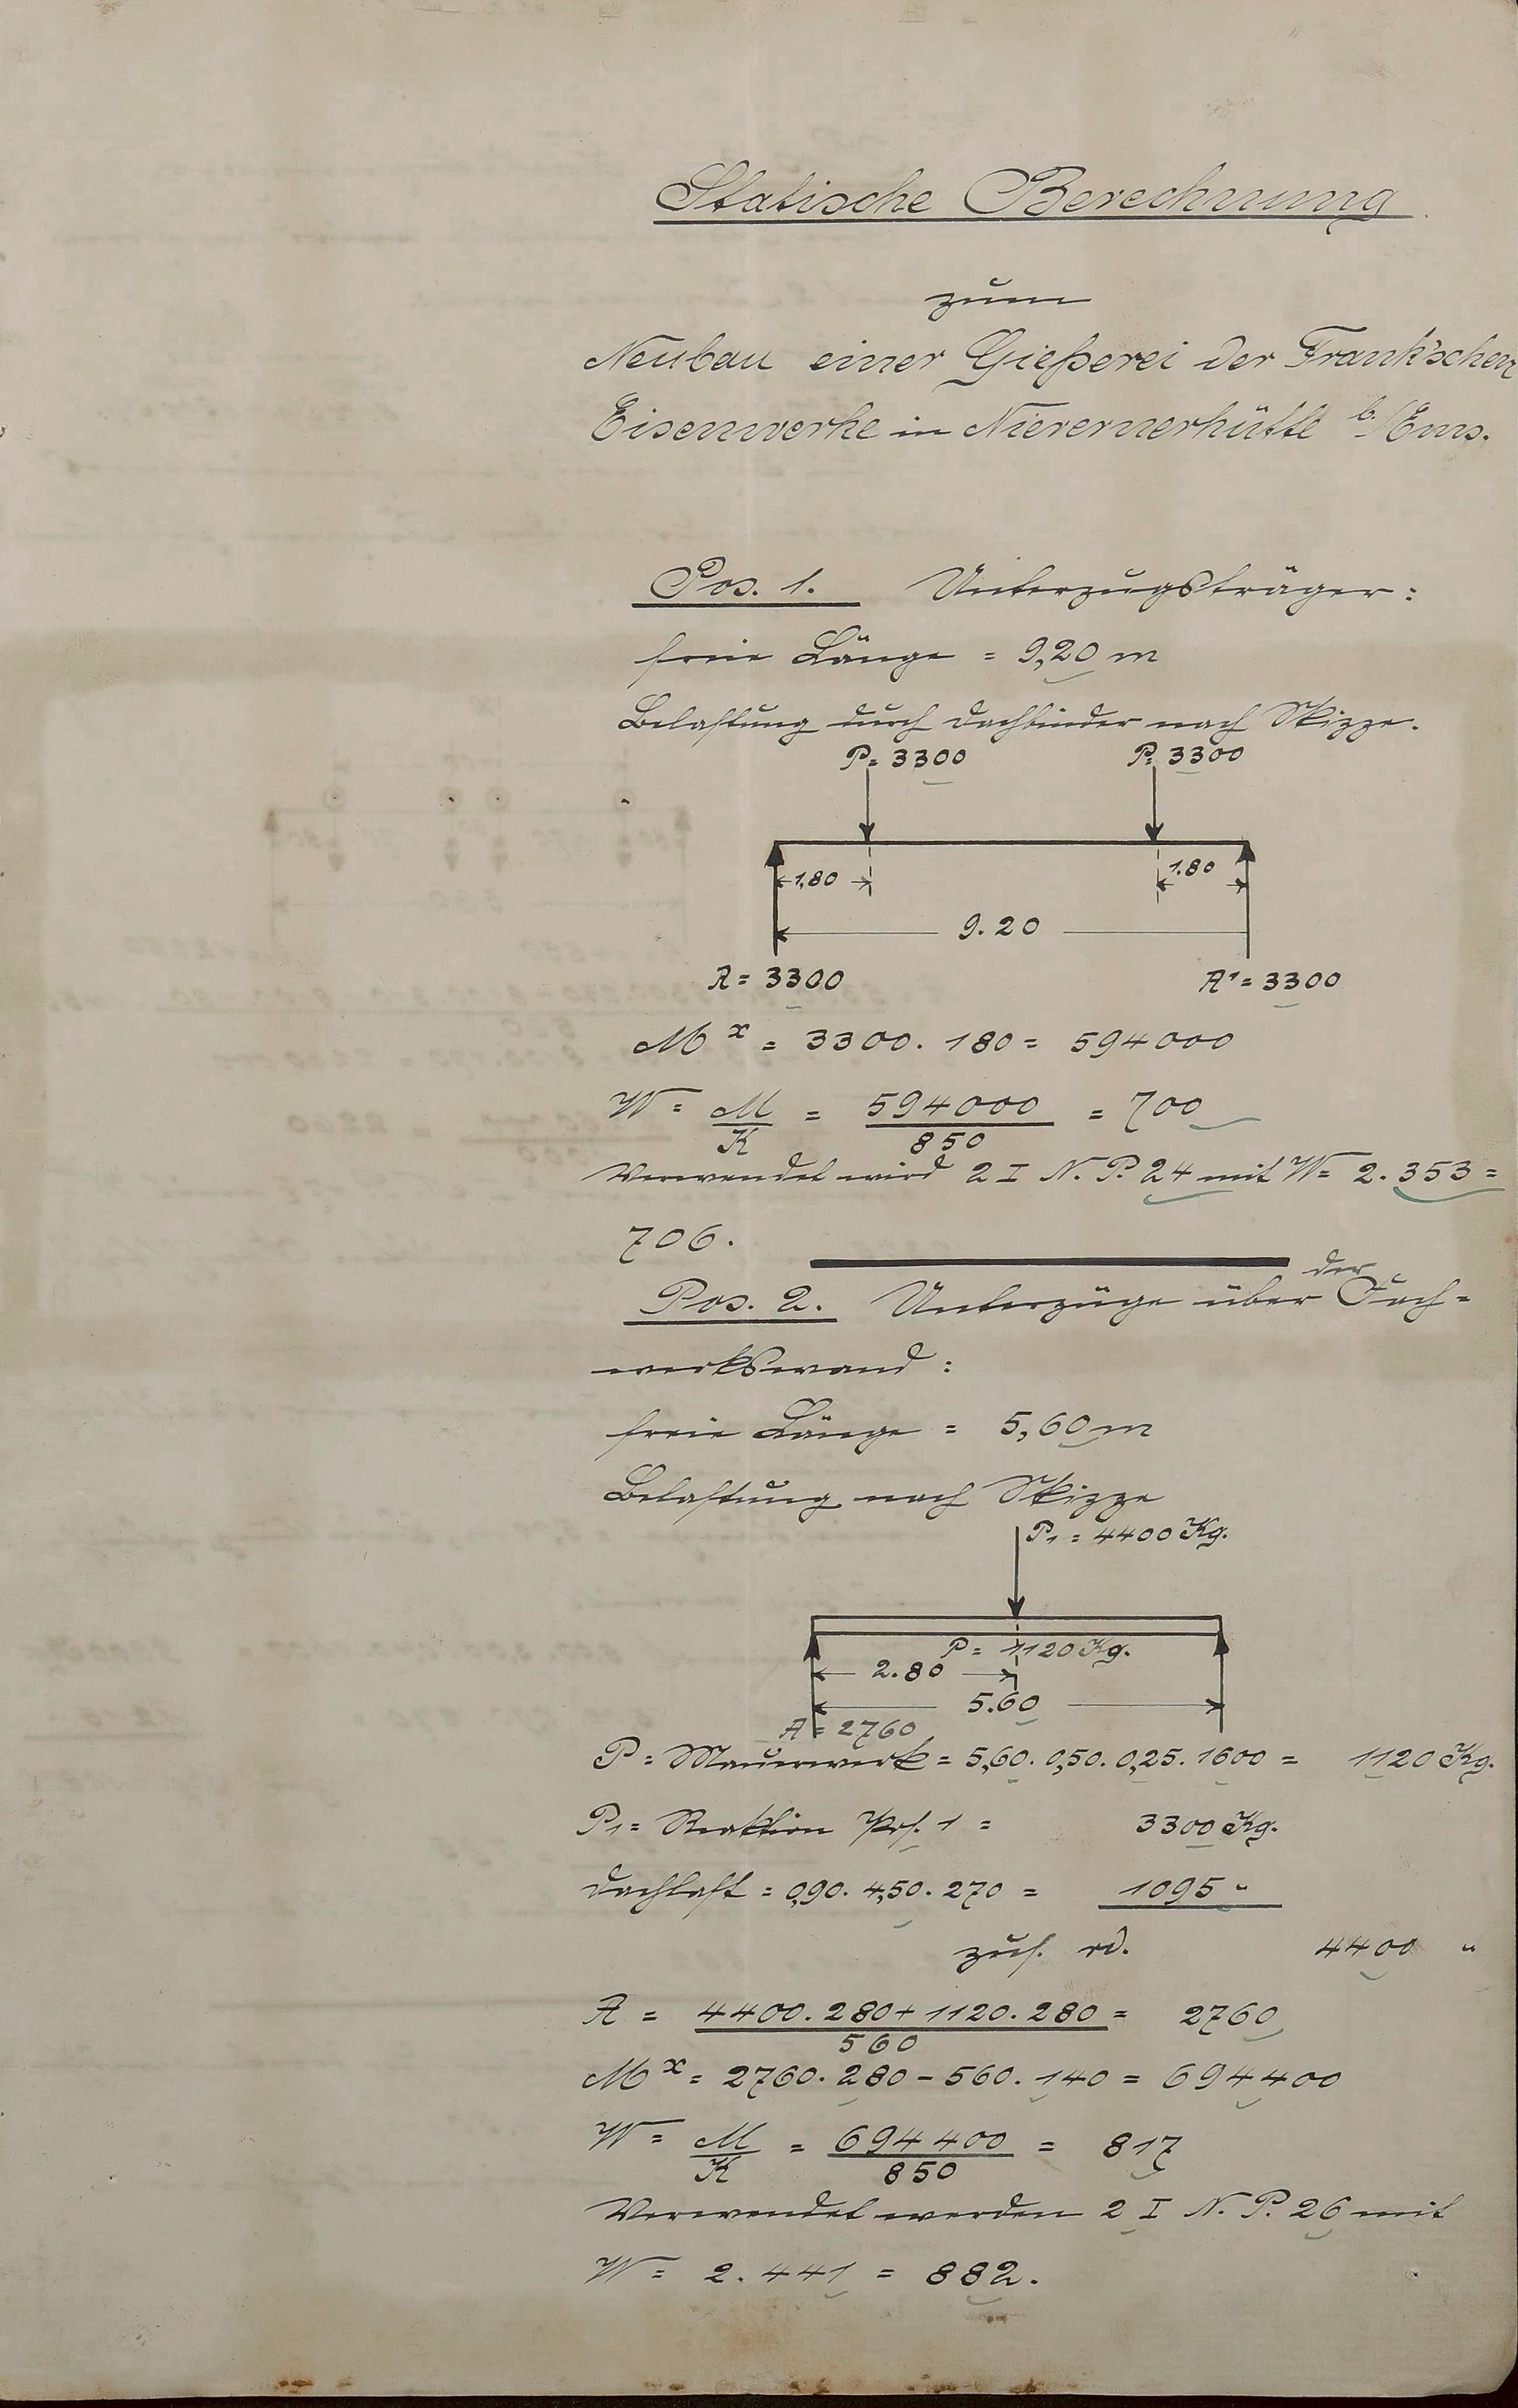 Statische Berechnung
zum
Neubau einer Gießerei der Frank'schen
Eisenwerke in Nievernerhütte b./Ems.
Pos. 1. Unterzugsträger:
freie Länge = 9,20 m
Belastung durch Dachbinder nach Skizze.
P= 3300 P= 3300
1,80 1.80
9.20
A = 3300 A¹ = 3300
Mx = 3300. 180 = 594000
W = M/K = 594000/850 = 700
Verwendet wird 2 I N. P. 24 mit W = 2. 353 =
706.
Pos. 2. Unterzüge über der Fach-
werkswand:
freie Länge = 5,60 m
Belastung nach Skizze
P1 = 4400 Kg.
P = 1120 Kg.
2.80
5.60
A = 2760
P = Mauerwerk = 5,60. 0,50. 0,25. 1600 = 1120 Kg.
P1 = Reaktion Pos. 1 = 3300 Kg.
Dachlast = 0,90. 4,50. 270 = 1095 "
zus. rd. 4400 "
A = 4400. 280 + 1120. 280/560 = 2760
Mx = 2760. 280 - 560. 140 = 694400
W = M/K = 694400/850 = 817
Verwendet werden 2 I N. P. 26 mit
W = 2. 441 = 882.